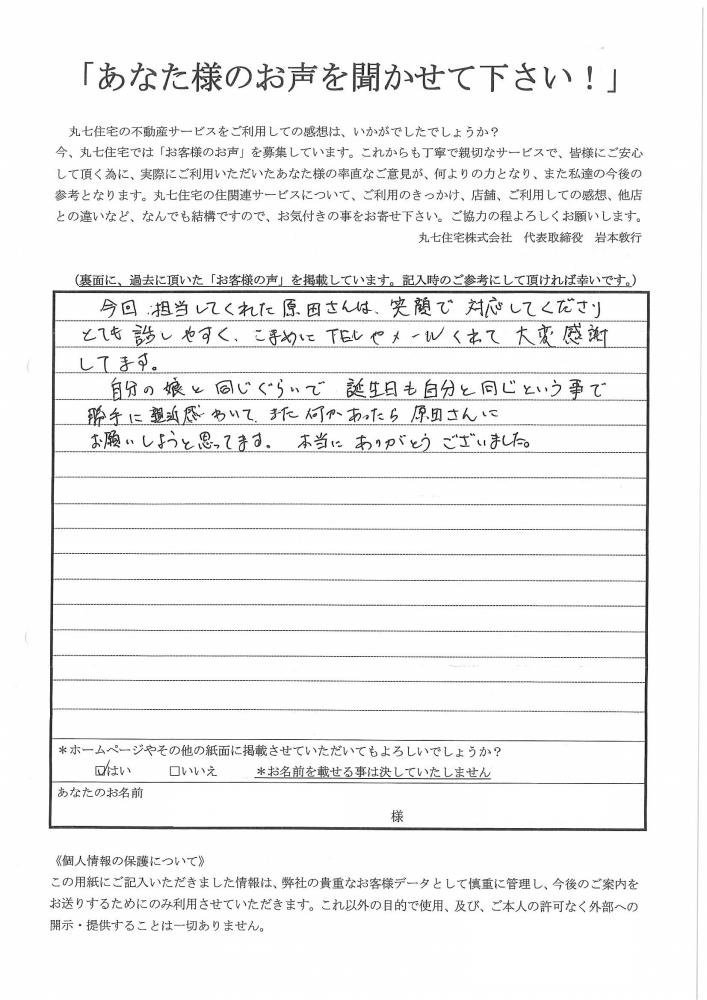 「あなた様のお声を聞かせて下さい！」
丸七住宅の不動産サービスをご利用しての感想は、いかがでしたでしょうか？
今、丸七住宅では「お客様のお声」を募集しています。これからも丁寧で親切なサービスで、皆様にご安心
して頂く為に、実際にご利用いただいたあなた様の率直なご意見が、何よりの力となり、また私達の今後の
参考となります。丸七住宅の住関連サービスについて、ご利用のきっかけ、店舗、ご利用しての感想、他店
との違いなど、なんでも結構ですので、お気付きの事をお寄せ下さい。ご協力の程よろしくお願いします。
丸七住宅株式会社　代表取締役　岩本敦行
（裏面に、過去に頂いた「お客様の声」を掲載しています。記入時のご参考にして頂ければ幸いです。）
今回 担当してくれた原田さんは、笑顔で 対応してくださり
とても 話しやすく、こまめに TELやメールくれて 大変感謝
してます。
自分の娘と同じぐらいで 誕生日も自分と同じという事で
勝手に親近感わいて、また何かあったら 原田さんに
お願いしようと思ってます。 本当に ありがとうございました。
＊ホームページやその他の紙面に掲載させていただいてもよろしいでしょうか？
☑はい　□いいえ　＊お名前を載せる事は決していたしません
あなたのお名前
様
《個人情報の保護について》
この用紙にご記入いただきました情報は、弊社の貴重なお客様データとして慎重に管理し、今後のご案内を
お送りするためにのみ利用させていただきます。これ以外の目的で使用、及び、ご本人の許可なく外部への
開示・提供することは一切ありません。